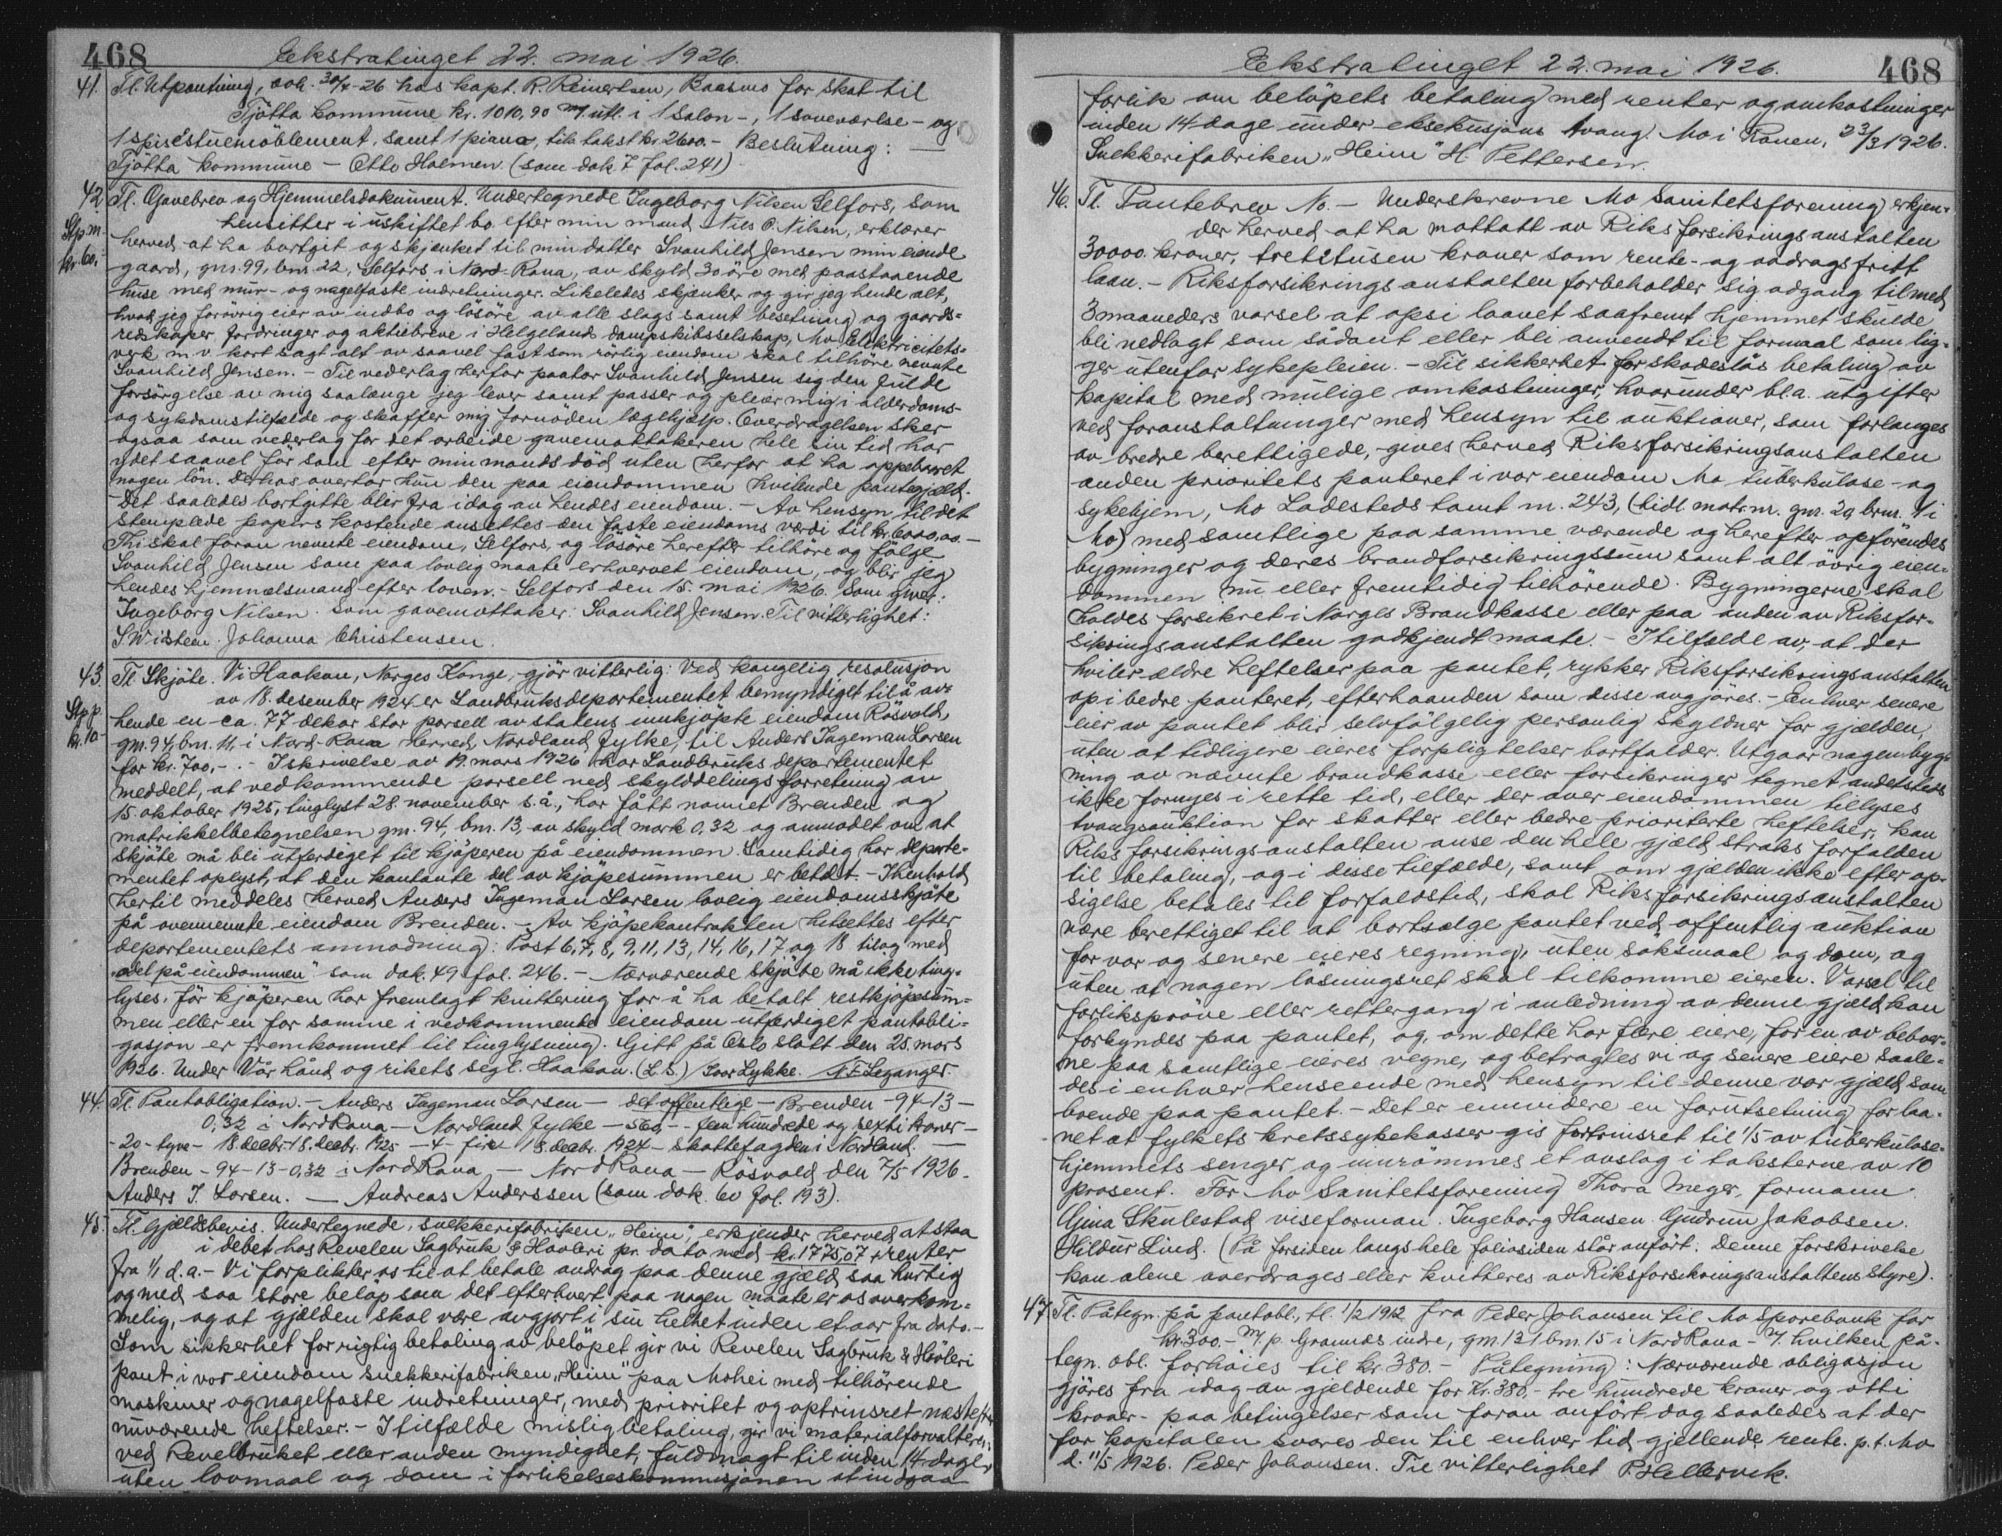 468
Ekstratinget 22. mai 1926.
41. Tl. Utpantning, avh. 30/4-26 hos kapt. R. Reinertsen, Baasmo for skat til
Tjøtta kommune kr. 1010,90 m/ utl. i 1 salon-, 1 soveværelse- og
1 spisestuemöblement, samt 1 piano, tils. takst kr. 2600.- Beslutning: —
Tjøtta kommune — Otto Holmen. (som dok 7 fol. 241)
42. Tl. Gavebrev og Hjemmelsdokument. Undertegnede Ingeborg Nilsen Selfors, som
Stp. m. hensitter i uskiftet bo efter min mand Nils P. Nilsen, erklærer
kr. 60.- herved at ha bortgit og skjenket til min datter Svanhild Jensen min eiende
gaard, gnr. 99, bnr. 22, Selfors i Nord-Rana, av skyld 30 öre med paastaaende
huse med mur- og nagelfaste indretninger. Likeledes skjænker og gir jeg hende alt,
hvad jeg forövrig eier av indbo og lösöre av alle slags samt besetning og gaards-
redskaper fordringer og aktiebreve i Helgeland dampskibsselskap, Mo Elektricitets-
verk m.v. kort sagt alt av saavel fast som rörlig eiendom skal tilhöre nevnte
Svanhild Jensen. — Til vederlag herfor paatar Svanhild Jensen sig den fulde
forsörgelse av mig saalænge jeg lever samt passer og pleier mig i alderdoms-
og sykdomstilfælde og skaffer mig fornöden lægehjælp. Overdragelsen sker
ogsaa som vederlag for det arbeide gavemottakeren hele sin tid har
ydet saavel för som efter min mands död uten herfor at ha oppebaaret
nogen lön. Derhos overtar hun den paa eiendommen hvilende pantegjæld.
Det saaledes bortgitte blir fra idag av hendes eiendom. — Av hensyn til det
stemplede papirs kostende ansettes den faste eiendoms værdi til kr. 6000,00. —
Thi skal foran nevnte eiendom, Selfors, og lösöre herefter tilhöre og fölge
Svanhild Jensen som paa lovlig maate erhvervet eiendom, og blir jeg
hendes hjemmelsmand efter loven. — Selfors den 15. mai 1926. Som giver:
Ingeborg Nilsen. Som gavemottaker: Svanhild Jensen. Til vitterlighet:
S Wisteen. Johanna Christensen.
43. Tl. Skjöte. Vi Haakon, Norges Konge, gjör vitterlig: Ved kongelig resolusjon
av 18. desember 1924 er Landbruksdepartementet bemyndiget til å av-
Stp. p. hende en ca. 77 dekar stor parsell av statens innkjöpte eiendom Rösvold,
kr. 10- gnr. 94, bnr. 11, i Nord-Rana herred, Nordland fylke, til Anders Ingeman Larsen
for kr. 700,-. - I skrivelse av 19. mars 1926 har Landbruksdepartementet
meddelt, at vedkommende parsell ved skylddelingsforretning av
15. oktober 1925, tinglyst 28. november s.å., har fått navnet Brenden og
matrikkelbetegnelsen gnr. 94, bnr. 13, av skyld mark 0,32 og anmodet om at
skjöte må bli utferdiget til kjöperen på eiendommen. Samtidig har departe-
mentet oplyst, at den kontante del av kjöpesummen er betalt. — I henhold
hertil meddeles herved Anders Ingeman Larsen lovlig eiendomsskjöte
på ovennevnte eiendom Brenden. — Av kjöpekontrakten hitsettes efter
departementets anmodning: Post 6, 7, 8, 9, 11, 13, 14, 16, 17 og 18 tilog med
"odel på eiendommen" som dok. 49 fol. 246. — Nærværende skjöte må ikke ting-
lyses, för kjöperen har fremlagt kvittering for å ha betalt restkjöpesum-
men eller en for samme i vedkommende eiendom utferdiget pantobli-
gasjon er fremkommet til tinglysning. Gitt på Oslo slott den 25. mars
1926. Under Vår hånd og rikets segl. Haakon. (L.S.) Ivar Lykke. G F Leganger.
44. Tl. Pantobligation. — Anders Ingeman Larsen — det offentlige — Brenden — 94-13 —
0,32 i Nord Rana — Nordland fylke — 560 — fem hundrede og sexti kroner —
- 20 - tyve - 18. decbr. - 18. decbr. 1925 — 4 — fire 18. decbr. 1924 — skattefogden i Nordland. —
Brenden — 94-13-0,32 i Nord Rana, — Nord Rana — Rösvold den 7/5 1926.
Anders I. Larsen. — Andreas Anderssen (som dok. 60 fol. 193).
45. Tl. Gjældsbevis. Undertegnede, snekkerifabriken "Heim", erkjender herved at staa
i debet hos Revelen Sagbruk & Høvleri pr. dato med kr. 1775,07 + renter
fra 1/1 d.a. - Vi forplikter os til at betale avdrag paa denne gjæld saa hurtig
og med saa store belöp som det efterhvert paa nogen maate er os overkom-
melig, og at gjælden skal være avgjort i sin helhet inden et aar fra dato. —
Som sikkerhet for rigtig betaling av belöpet gir vi Revelen Sagbruk & Høvleri
pant i vor eiendom snekkerifabriken "Heim" paa Mohei med tilhörende
maskiner og nagelfaste indretninger, med prioritet og optrinsret næst efter
nuværende heftelser. — I tilfælde mislig betaling, gir vi materialforvalteren
ved Revelbruket eller anden myndighet, fuldmagt til inden 14 dage
uten lovmaal og dom i forlikelseskommissjonen at indgaa
468
Ekstratinget 22. mai 1926.
forlik om belöpets betaling med renter og omkostninger
inden 14 dage under eksekusjons tvang. Mo i Ranen, 23/3 1926.
Snekkerifabriken "Heim" H. Pettersen.
46. Tl. Pantebrev No. — Underskrevne Mo Sanitetsforening erkjen-
der herved at ha mottatt av Riksforsikringsanstalten
30000 kroner, tretitusen kroner som rente- og avdragsfritt
laan. — Riksforsikringsanstalten forbeholder sig adgang til med
3 maaneders varsel at opsi laanet saafremt hjemmet skulde
bli nedlagt som sådant eller bli anvendt til formaal som lig-
ger utenfor sykepleien. — Til sikkerhet for skadeslös betaling av
kapital med mulige omkostninger, hvorunder bl.a. utgifter
ved foranstaltninger med hensyn til auktioner, som forlanges
av bedre berettigede, gives herved Riksforsikringsanstalten
anden prioritets panteret i vor eiendom Mo tuberkulose- og
sykehjem, Mo Ladesteds tomt nr. 243, (tidl. matr.nr. gnr. 29 brnr. 1 i
Mo) med samtlige paa samme værende og herefter opförendes
bygninger og deres brandforsikringssum samt alt övrig eien-
dommen nu eller fremtidig tilhörende. Bygningerne skal
holdes forsikret i Norges Brandkasse eller paa anden av Riksfor-
sikringsanstalten godkjendt maate. — I tilfælde av, at der
hviler ældre heftelser paa pantet, rykker Riksforsikringsanstalten
op i bedre panteret, efterhaanden som disse avgjöres. — Enhver senere
eier av pantet blir selvfölgelig personlig skyldner for gjælden,
uten at tidligere eieres forpligtelser bortfalder. Utgaar nogen byg-
ning av nævnte brandkasse eller forsikringer tegnet andetsteds
ikke fornyes i rette tid, eller der over eiendommen tillyses
tvangsauktion for skatter eller bedre prioriterte heftelser, kan
Riksforsikringsanstalten anse den hele gjæld straks forfalden
til betaling, og i disse tilfælde, samt om gjælden ikke efter op-
sigelse betales til forfaldstid, skal Riksforsikringsanstalten
være berettiget til at bortsælge pantet ved offentlig auktion
for vor og senere eieres regning, uten söksmaal og dom, og
uten at nogen lösningsret skal tilkomme eieren. Varsel til
forliksprøve eller rettergang i anledning av denne gjæld kan
forkyndes paa pantet, og, om dette har flere eiere, for en av beboer-
ne paa samtlige eieres vegne, og betragtes vi og senere eiere saale-
des i enhver henseende med hensyn til denne vor gjæld som
boende paa pantet. — Det er emnvidere en forutsetning for laa-
net at fylkets kretssykekasser gis fortrinsret til 1/5 av tuberkulose-
hjemmets senger og innrömmes et avslag i taksterne av 10
prosent. For Mo Sanitetsforening Thora Meyer, formann.
Gjina Skulestad viseforman. Ingeborg Hansen. Gudrun Jakobsen.
Hildur Lind. (På forsiden langs hele foliosiden står anfört: Denne forskrivelse
kan alene overdrages eller kvitteres av Riksforsikringsanstaltens Styre).
47. Tl. Påtegn. på pantobl., tl. 1/2 1912 fra Peder Johansen til Mo Sparebank for
kr. 300.- m/p. Grannes indre, gnr. 121 bnr. 15 i Nord Rana — v/ hvilken på-
tegn. obl. forhöies til kr. 380.- Påtegning: Nærværende obligasjon
gjöres fra idag av gjeldende for kr. 380,- tre hundrede kroner og otti
kroner- paa betingelser som foran anfört dog saaledes at der
for kapitalen svares den til enhver tid gjellende rente. p.t. Mo
d. 11/5 1926. Peder Johansen. Til vitterlighet P. Hellervik.